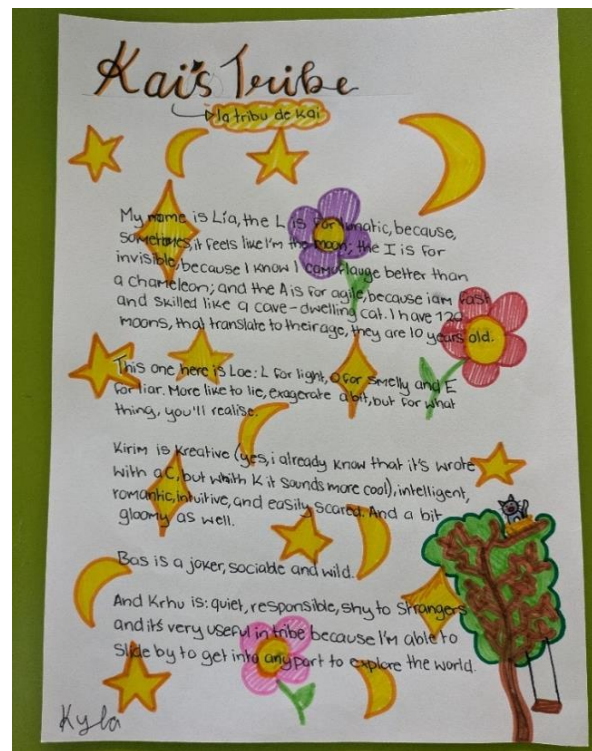 Kai's Tribe
la tribu de Kai
My name is Lía, the L is for lunatic, because,
sometimes, it feels like I'm the moon; the I is for
invisible, because I know I camuflauge better than
a chameleon; and the A is for agile, because iam fast
and skilled like a cave-dwelling cat. I have 120
moons, that translate to their age, they are 10 years old.
This one here is Loe: L for light, O for smelly and E
for liar. More like to lie, exagerate a bit, but for what
thing, you'll realise.
Kirim is Kreative (yes, i already know that it's wrote
with a C, but whith K it sounds more cool), intelligent,
romantic, intuitive, and easily scared. And a bit
gloomy as well.
Bas is a joker, sociable and wild.
And Krhu is: quiet, responsible, shy to strangers
and it's very useful in tribe because I'm able to
slide by to get into any part to explore the world.
Kyla